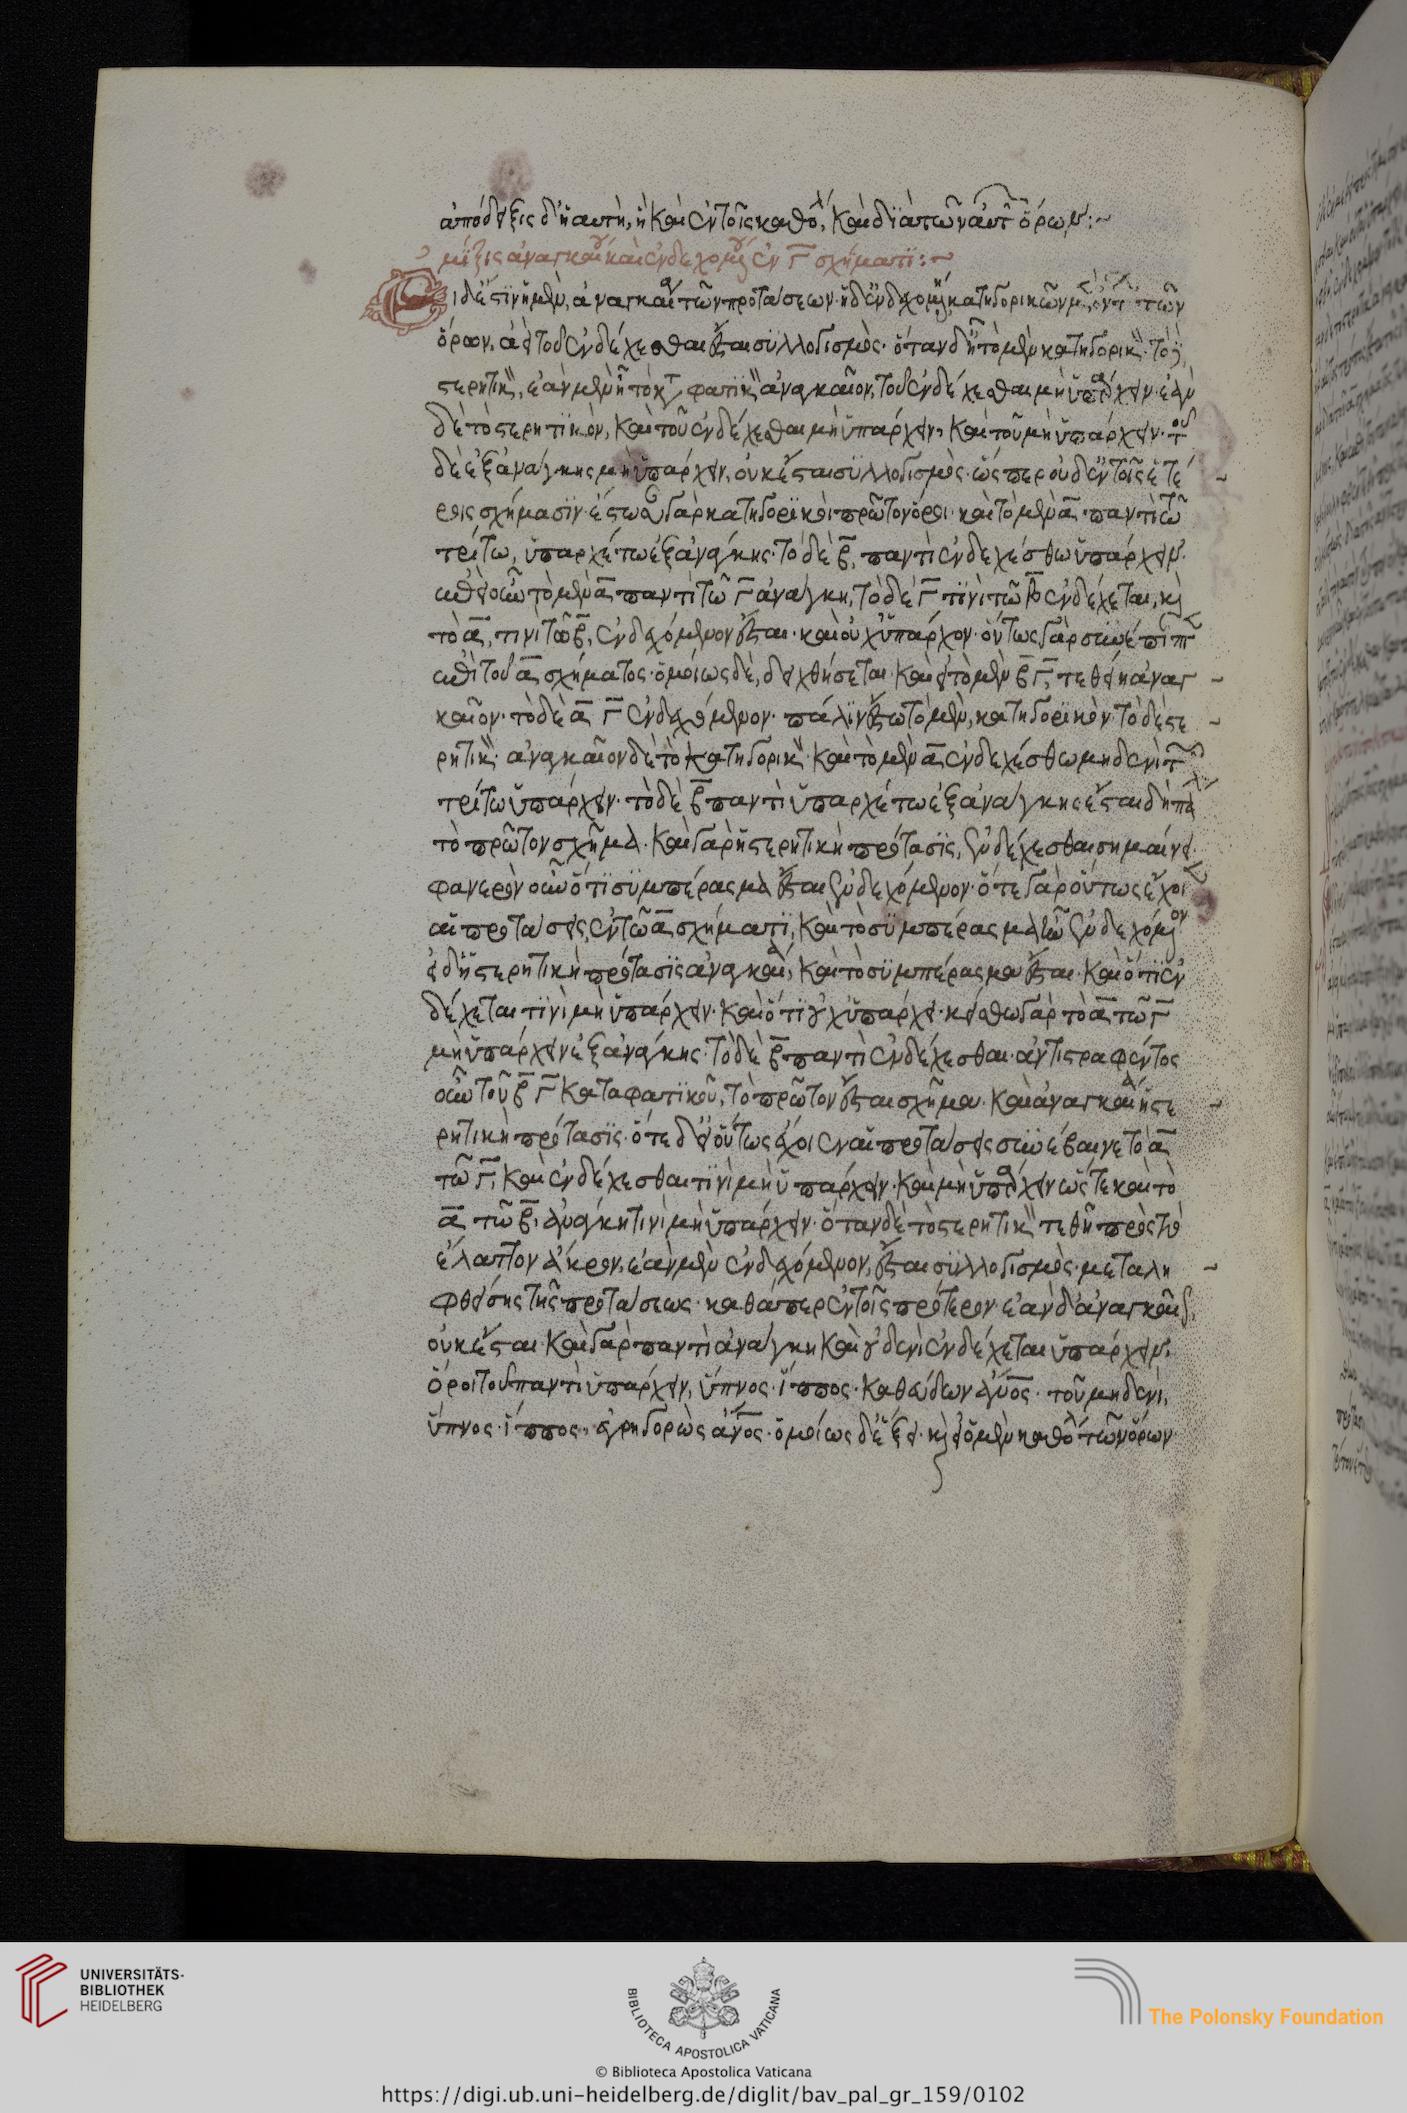 ἀπόδειξις δ' ἡ αὐτὴ, ἣ καὶ ἐν τοῖς καθόλ, καὶ διὰ τῶν αὐτ ὅρων:~
μίξις ἀναγκαίου καὶ ἐνδεχομένου ἐν Γ σχήματι:~
Εἰ δέ ἐστιν ἡ μὲν, ἀναγκαία τῶν προτάσεων· ἡ δ' ἐνδεχομένη, κατηγορικῶν μὲν ὄντων τῶν
ὅρων, ἀεὶ τοῦ ἐνδέχεσθαι ἔσται συλλογισμὸς· ὅταν δ' ἦ τὸ μὲν κατηγορικ· τὸ δὲ
στερητικ, ἐὰν μὲν ἦ τὸ κατφατικ ἀναγκαῖον, τοῦ ἐνδέχεσθαι μὴ ὑπάρχειν· ἐὰν
δὲ τὸ στερητικὸν, καὶ τοῦ ἐνδέχεσθαι μὴ ὑπάρχειν, καὶ τοῦ μὴ ὑπάρχειν· τοῦ
δὲ ἐξ ἀνάγκης μὴ ὑπάρχειν, οὐκ ἔσται συλλογισμὸς· ὥσπερ οὐδ' ἐν τοῖς ἑτέ
ροις σχήμασιν· ἔστωσαν γὰρ κατηγορικοὶ πρῶτον ὅροι· καὶ τὸ μὲν α παντὶ τῶ
τρίτω, ὑπαρχέτω ἐξ ἀνάγκης· τὸ δὲ β, παντὶ ἐνδεχέσθω ὑπάρχειν·
ἐπεὶ οὖν τὸ μὲν α παντὶ τῶ Γ ἀνάγκη, τὸ δὲ Γ τινὶ τῶ β ἐνδέχεται, καὶ
τὸ α, τινὶ τῶ β, ἐνδεχόμενον ἔσται· καὶ οὐχ ὑπάρχον· οὕτως γὰρ συνέπιπτεν
ἐπὶ τοῦ α σχήματος· ὁμοίως δὲ, δειχθήσεται καὶ εἰ τὸ μὲν β Γ, τεθείη ἀναγ
καῖον· τὸ δὲ α Γ ἐνδεχόμενον· πάλιν ἔστω τὸ μὲν, κατηγορικὸν· τὸ δὲ στε
ρητικ· ἀναγκαῖον δὲ τὸ κατηγορικ· καὶ τὸ μὲν α ἐνδεχέσθω μηδενὶ τῶ
τρίτω ὑπάρχειν· τὸ δὲ β παντὶ ὑπαρχέτω ἐξ ἀνάγκης ἔσται δὴ πάλιν
τὸ πρῶτον σχῆμα· καὶ γὰρ ἡ στερητικὴ πρότασις, ἐνδέχεσθαι σημαίνει·
φανερὸν οὖν ὅτι συμπέρασμα ἔσται ἐνδεχόμενον· ὅτε γὰρ οὕτως ἔχοιεν
αἱ προτάσεις, ἐν τῶ α σχήματι, καὶ τὸ συμπέρασμα ἦν ἐνδεχόμενον
εἰ δ' ἡ στερητικὴ πρότασις ἀναγκαία, καὶ τὸ συμπέρασμα ἔσται· καὶ ὅτι ἐν
δέχεται τινὶ μὴ ὑπάρχειν· καὶ ὅτι οὐχ ὑπάρχει· κείσθω γὰρ τὸ α τῶ Γ
μὴ ὑπάρχειν ἐξ ἀνάγκης· τὸ δὲ β παντὶ ἐνδέχεσθαι· ἀντιστραφέντος
οὖν τοῦ β Γ καταφατικοῦ, τὸ πρῶτον ἔσται σχῆμα· καὶ ἀναγκαία ἡ στε
ρητικὴ πρότασις· ὅτε δ' οὕτως ἔχοιεν αἱ προτάσεις συνέβαινε τὸ α
τῶ Γ, καὶ ἐνδέχεσθαι τινὶ μὴ ὑπάρχειν· καὶ μὴ ὑπάρχειν ὥστε καὶ τὸ
α τῶ β, ἀνάγκη τινὶ μὴ ὑπάρχειν· ὅταν δὲ τὸ στερητικ τεθῆ πρὸς τὸ
ἔλαττον ἄκρον, ἐὰν μὲν ἐνδεχόμενον, ἔσται συλλογισμὸς· μεταλη
φθείσης τῆς προτάσεως· καθάπερ ἐν τοῖς πρότερον ἐὰν δ' ἀναγκαῖον,
οὐκ ἔσται· καὶ γὰρ παντὶ ἀνάγκη καὶ οὐδενὶ ἐνδέχεται ὑπάρχειν·
ὅροι τοῦ παντὶ ὑπάρχειν, ὕπνος· ἵππος· καθεύδων ἄνος· τοῦ μηδενὶ,
ὕπνος· ἵππος, ἐγρηγορὼς ἄνος· ὁμοίως δ' ἕξει· καὶ εἰ ὁ μὲν καθόλ τῶν ὅρων·
UNIVERSITÄTS-
BIBLIOTHEK
HEIDELBERG
BIBLIOTECA APOSTOLICA VATICANA
The Polonsky Foundation
© Biblioteca Apostolica Vaticana
https://digi.ub.uni-heidelberg.de/diglit/bav_pal_gr_159/0102